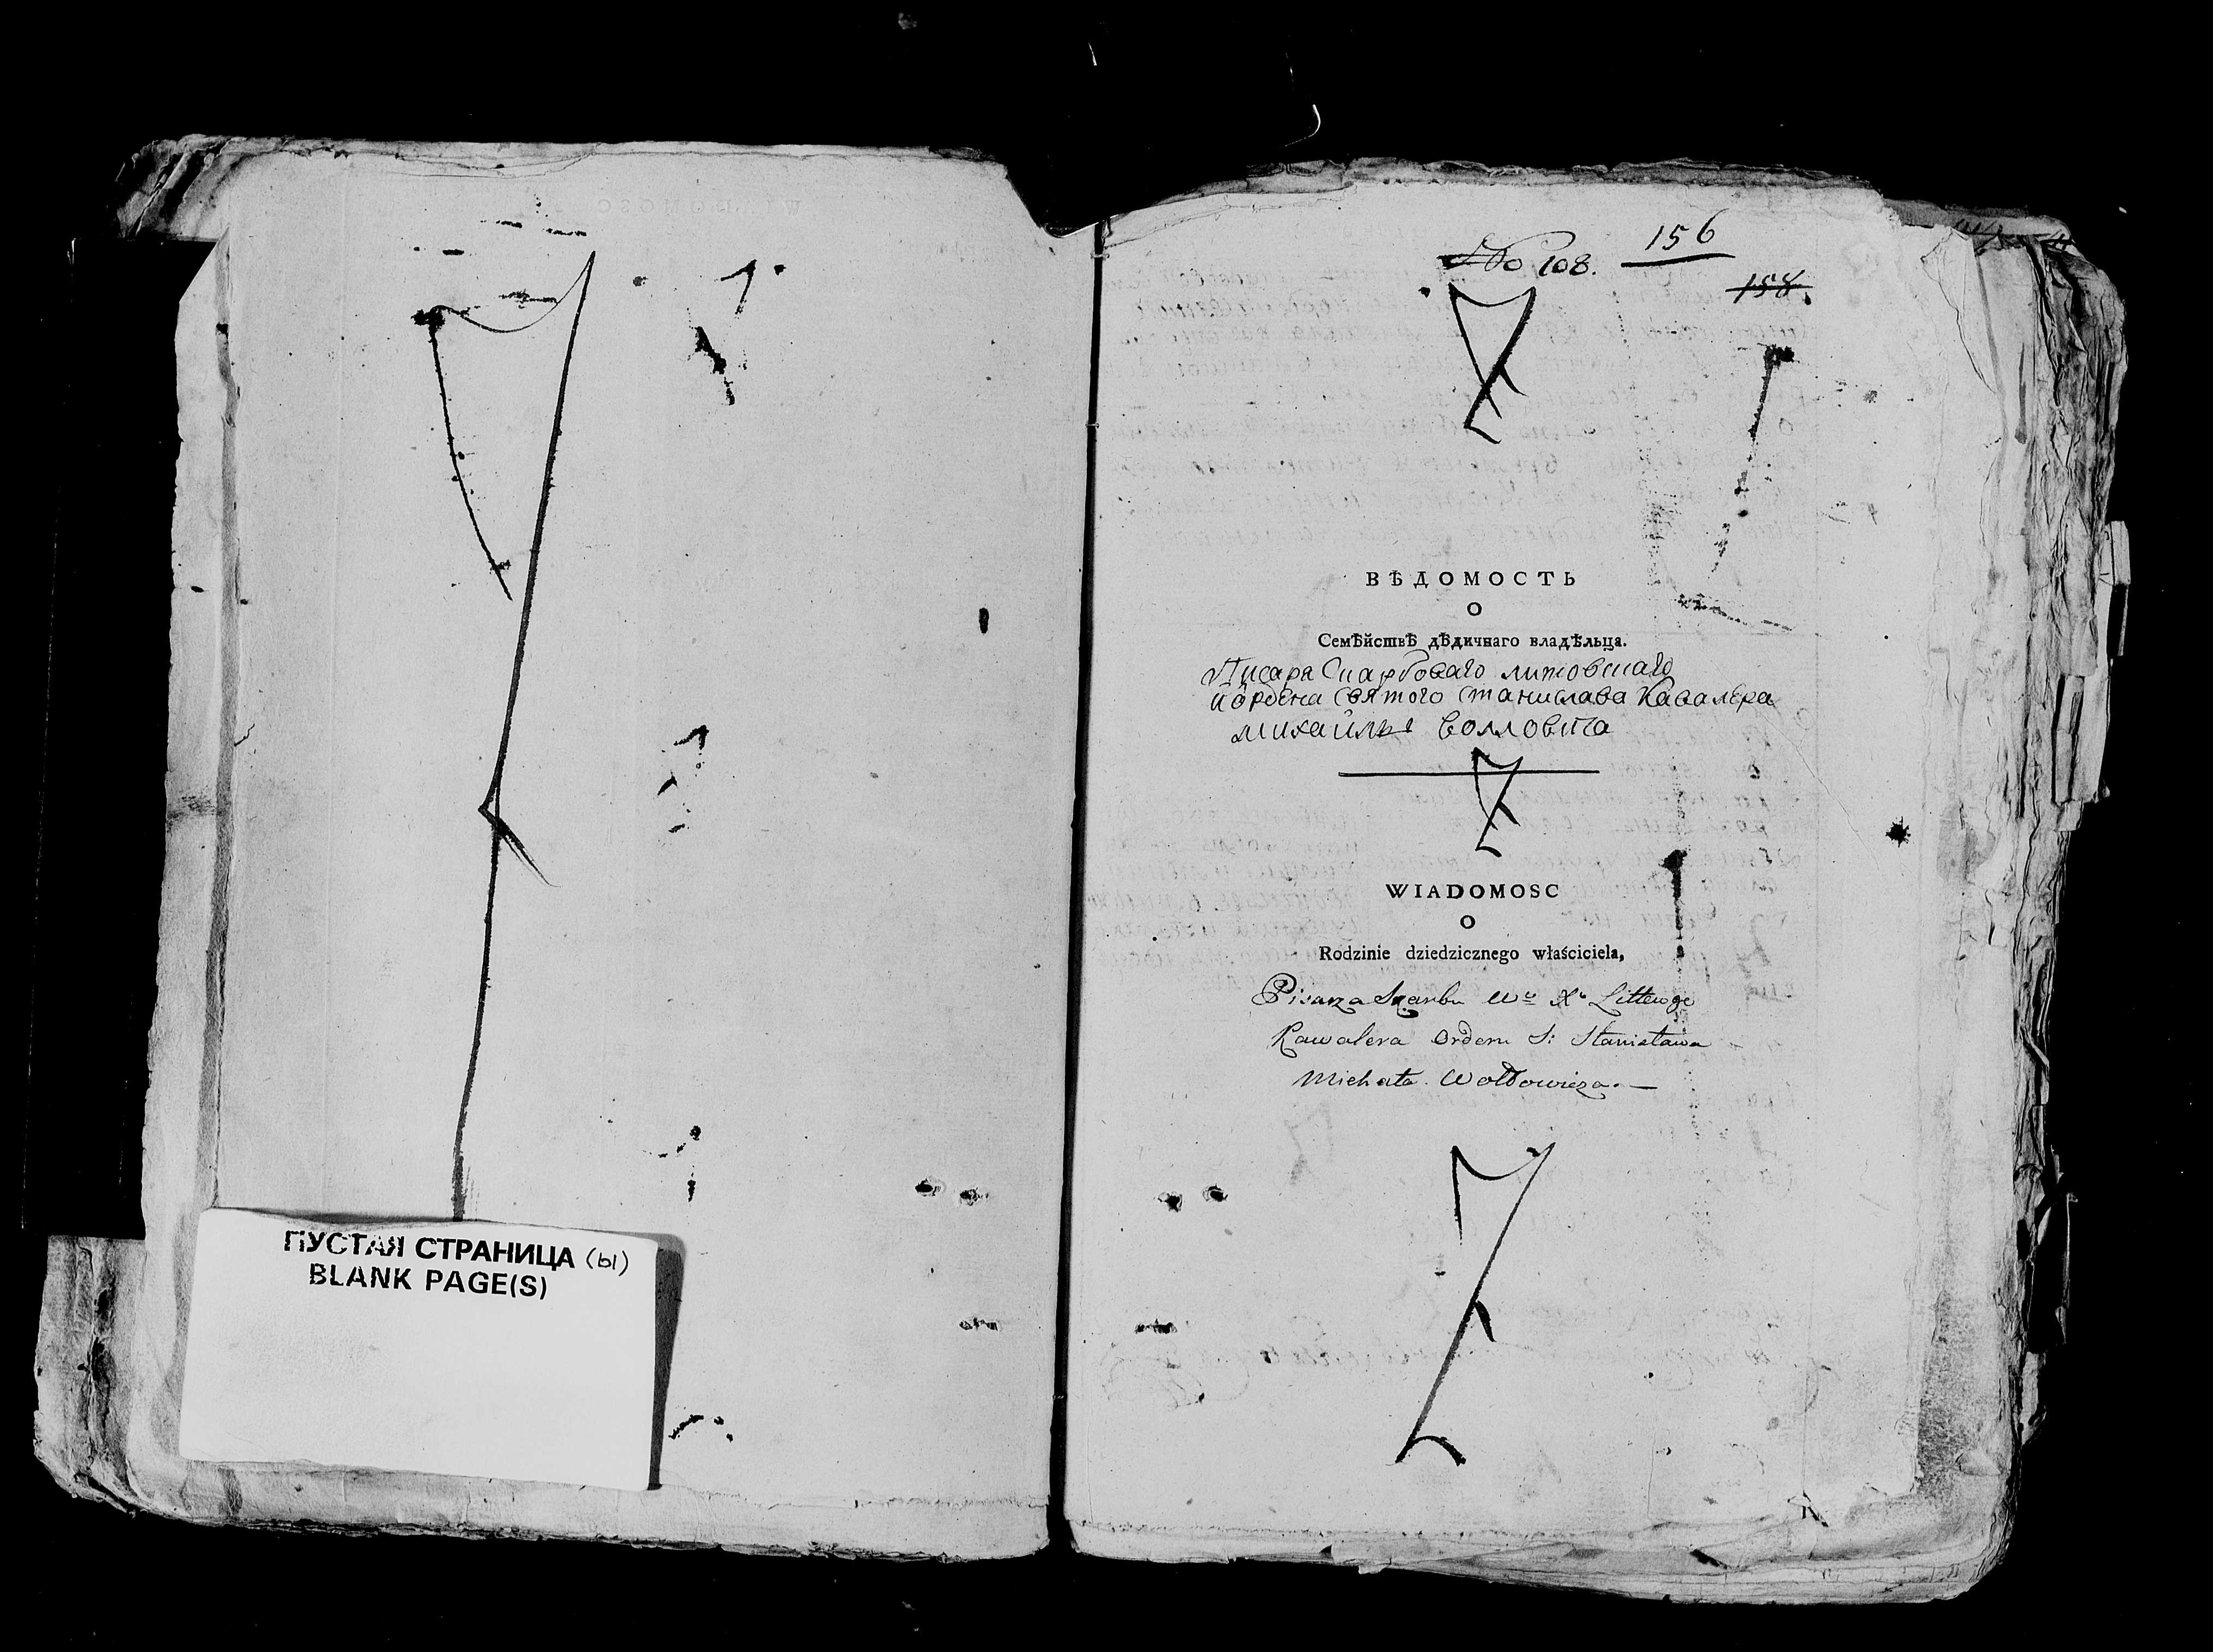 ПУСТАЯ СТРАНИЦА (ы)
BLANK PAGE(S)
No 108.
156
158.
ВѢДОМОСТЬ
О
Семѣйствѣ дѣдичнаго владѣльца.
Писаря Скарбоваго литовскаго
и ордена святого станислава Кавалера
михайлы воллович́а
WIADOMOSC
O
Rodzinie dziedzicznego właściciela,
Pisarza Skarbu Wo Xo Littewgo
Kawalera Orderu S: Stanisława
Michała Wołłowicza.—